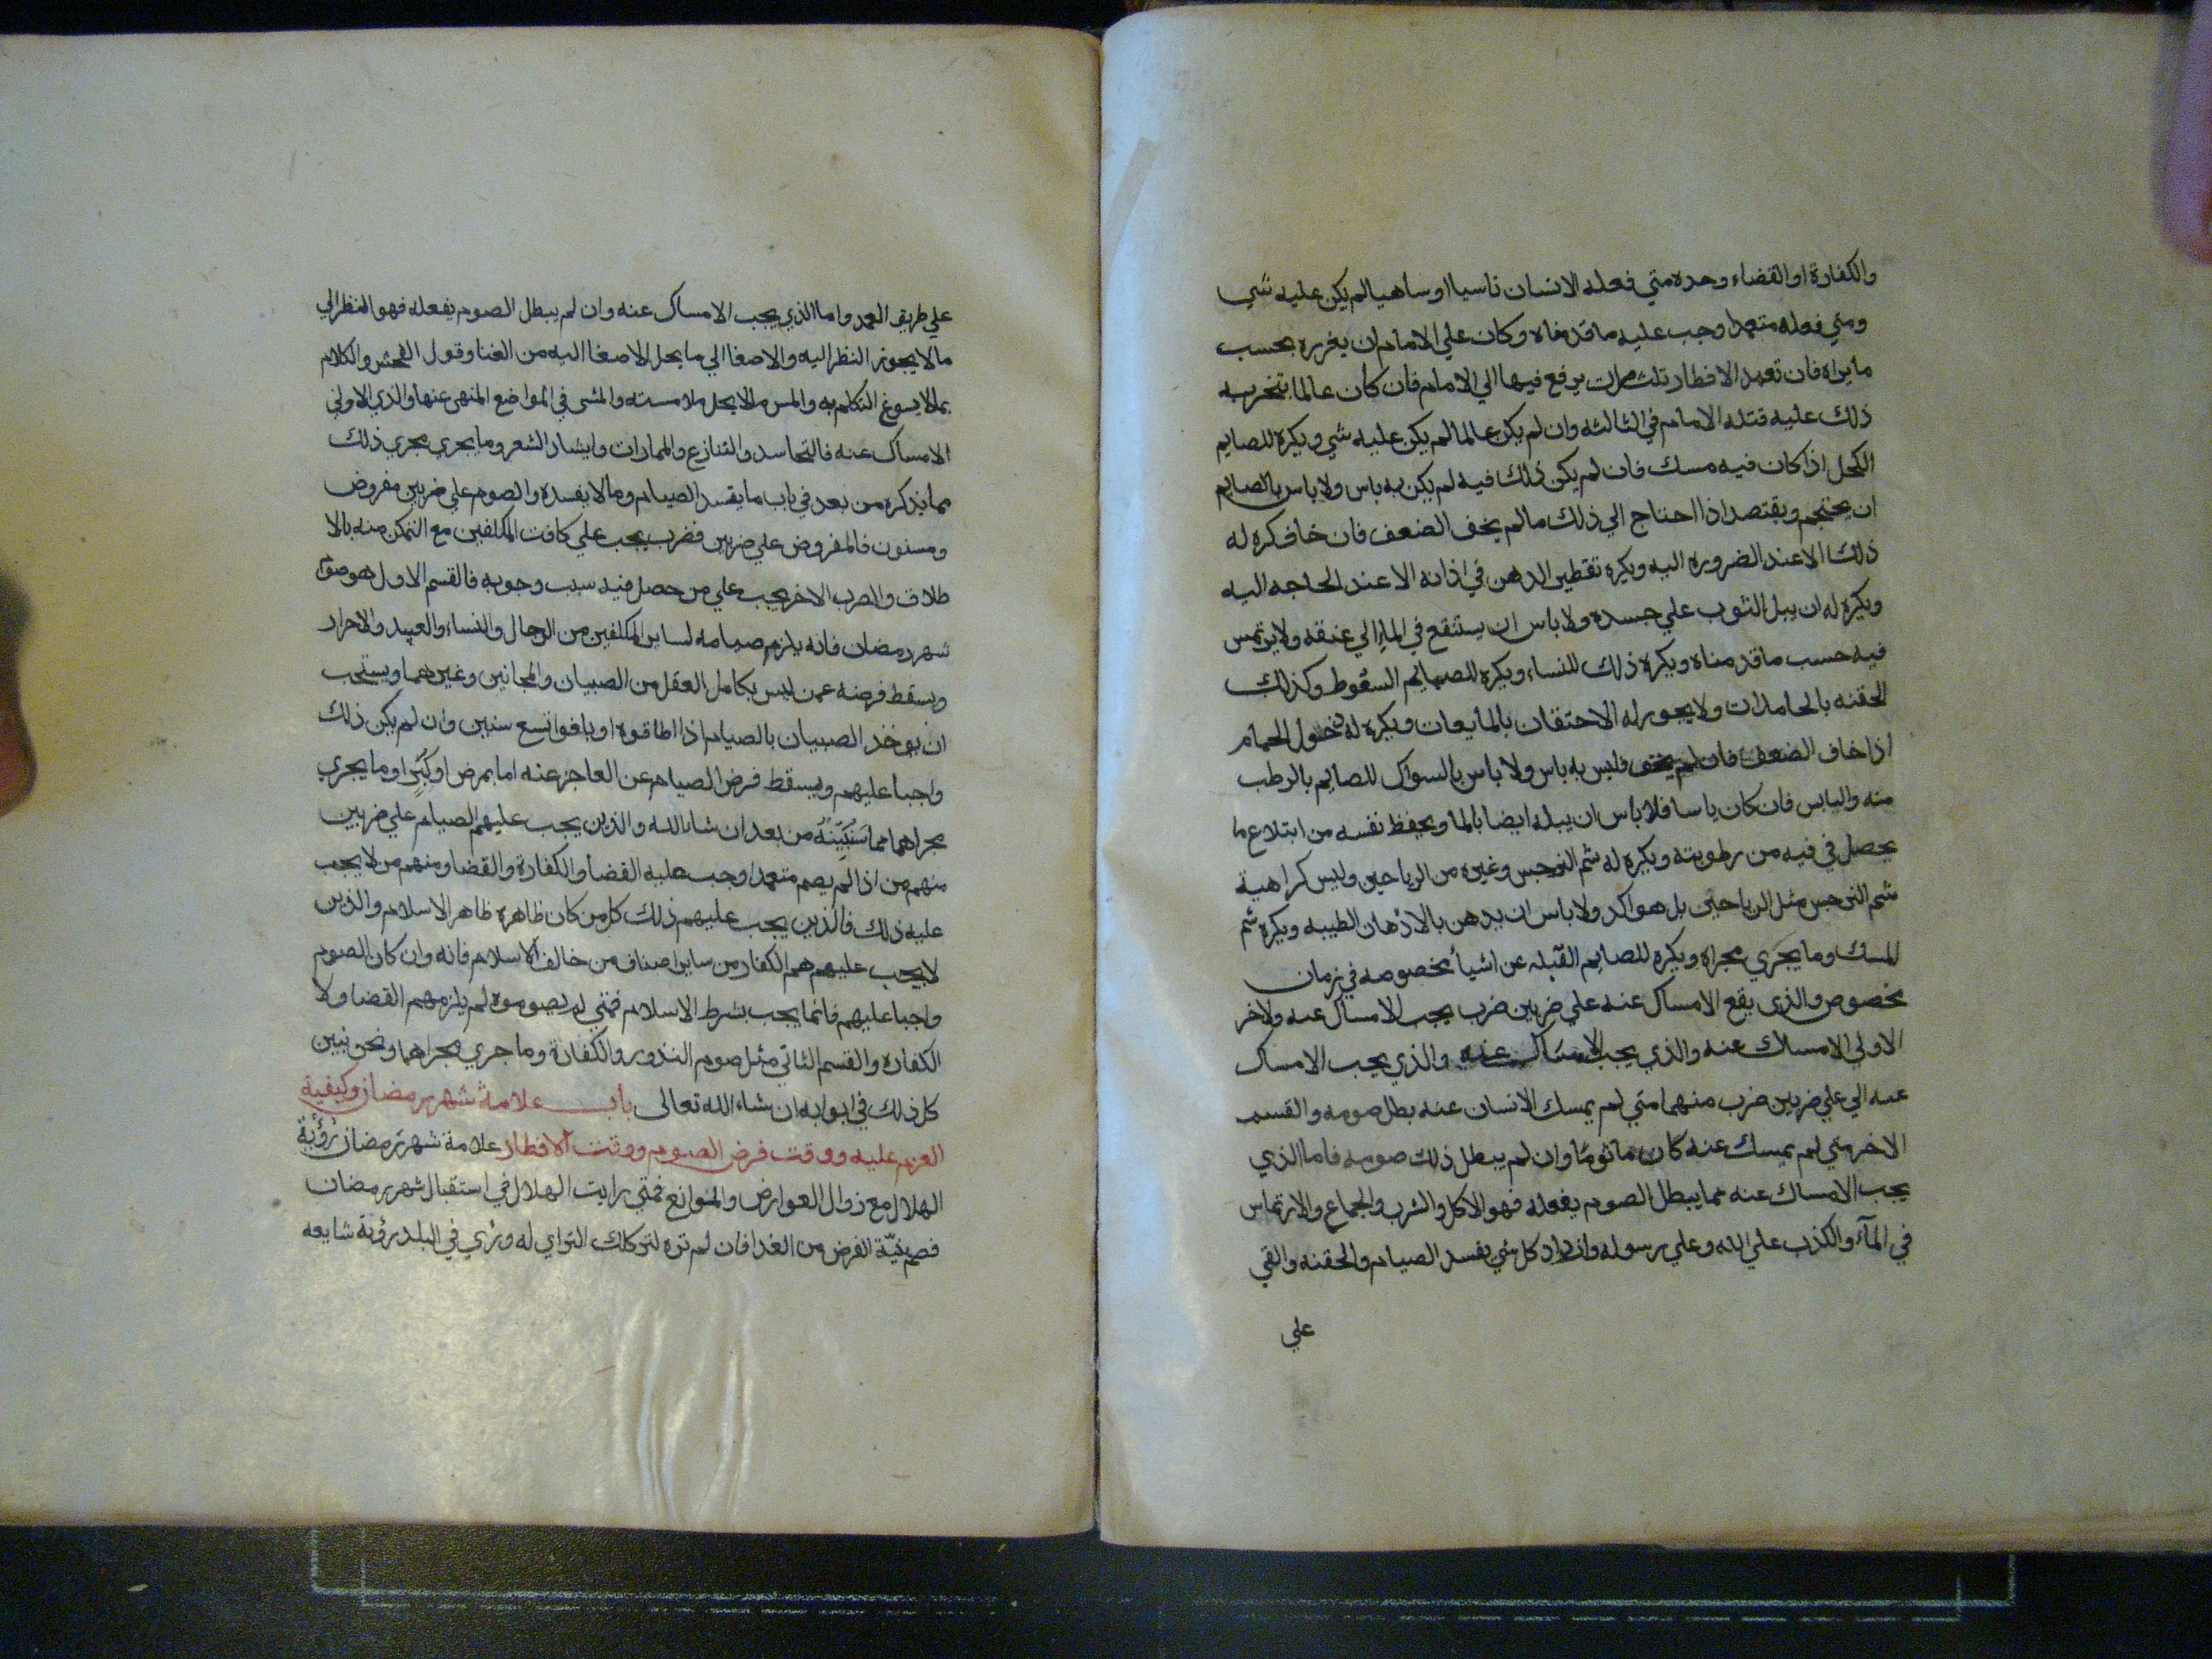 والكفارة او القضاء وحده متي فعله الانسان ناسيا او ساهيا لم يكن عليه شي
ومتي فعله متعمدا وجب عليه ما قدمناه وكان علي الامام ان يعزره بحسب
ما يراه فان تعمد الافطار ثلث مرات يرفع فيها الي الامام فان كان عالما بتحريم
ذلك عليه قتله الامام في الثالثه وان لم يكن عالما لم يكن عليه شي ويكره للصايم
الكحل اذا كان فيه مسك فان لم يكن ذلك فيه لم يكن به باس ولا باس بالصايم
ان يحتجم ويفتصد اذا احتاج الي ذلك ما لم يخف الضعف فان خاف كره له
ذلك الا عند الضروره اليه ويكره تقطير الدهن في اذانه الا عند الحاجه اليه
ويكره له ان يبل الثوب علي جسده ولا باس ان يستنقع في الماء الي عنقه ولا يرتمس
فيه حسب ما قدمناه ويكره ذلك للنساء ويكره للصايم السعوط وكذلك
الحقنه بالجامدات ولا يجوز له الاحتقان بالمايعات ويكره له دخول الحمام
اذا خاف الضعف فان لم يخف فليس به باس ولا باس بالسواك للصايم بالرطب
منه واليابس فان كان ياسا فلا باس ان يبله ايضا بالما ويحفظ نفسه من ابتلاع ما
يحصل في فيه من رطوبته ويكره له شم النرجس وغيره من الرياحين وليس كراهية
شم النرجس مثل الرياحين بل هو اكد ولا باس ان يدهن بالادهان الطيبه ويكره شم
المسك وما يجري مجراه ويكره للصايم القبله عن اشيأ مخصوصه في زمان
مخصوص والذي يقع الامساك عنه علي ضربين ضرب يجب الامساك عنه والاخر
الاولي الامساك عنه والذي يجب الامساك عنه والذي يجب الامساك
عنه الي علي ضربين ضرب منهما متي لم يمسك الانسان عنه بطل صومه والقسم
الاخر متي لم يمسك عنه كان ماثوما وان لم يبطل ذلك صومه فاما الذي
يجب الامساك عنه مما يبطل الصوم بفعله فهو الاكل والشرب والجماع والارتماس
في المآء والكذب علي الله وعلي رسوله وازدراد كل شي يفسد الصيام والحقنه والقي
علي
علي طريق العمد واما الذي يجب الامساك عنه وان لم يبطل الصوم بفعله فهو النظر الي
ما لا يجوز النظر اليه والاصغا الي ما يحل الاصغا اليه من الغنا وقول الفحش والكلام
بما لا يسوغ التكلم به والمس ما لا يحل ملامسته والمشى في المواضع المنهى عنها والذي الاولي
الامساك عنه فالتحاسد والتنازع والممارات وايشاد الشعر وما يجري مجري ذلك
مما يذكره من بعد في باب ما يفسد الصيام وما لا يفسده والصوم علي ضربين مفروض
ومسنون فالمفروض علي ضربين فضرب يجب علي كافت المكلفين مع التمكن منه بالا
طلاق والضرب الاخر يجب علي من حصل فيه سبب وجوبه فالقسم الاول هو صوم
شهر رمضان فانه يلزم صيامه لساير المكلفين من الرجال والنساء والعبيد والاحرار
ويسقط فرضه عمن ليس بكامل العقل من الصبيان والمجانين وغيرهما ويستحب
ان يوخذ الصبيان بالصيام اذا اطاقوه او بلغوا تسع سنين وان لم يكن ذلك
واجبا عليهم ويسقط فرض الصيام عن العاجز عنه اما بمرض او كبر او ما يجري
مجراهما مما سنبينه من بعد ان شا الله والذين يجب عليهم الصيام علي ضربين
منهم من اذا لم يصم متعمدا وجب عليه القضا والكفارة والقضا ومنهم من لا يجب
عليه ذلك فالذين يجب عليهم ذلك كل من كان ظاهره ظاهر الاسلام والذين
لا يجب عليهم هم الكفار من ساير اصناف من خالف الاسلام فانه وان كان الصوم
واجبا عليهم فانما يجب بشرط الاسلام فمتي لم يصوموه لم يلزمهم القضا ولا
الكفاره والقسم الثاني مثل صوم النذور والكفارة وما جري مجراهما ونحن نبين
كل ذلك في ابوابه ان شاء الله تعالى باب علامة شهر رمضان وكيفية
العزم عليه ووقت فرض الصوم ووقت الافطار علامة شهر رمضان رؤية
الهلال مع زوال العوارض والموانع فمتي رايت الهلال في استقبال شهر رمضان
فصم بنية الفرض من الغد فان لم تره لتركك التراي له ورئي في البلد رؤية شايعه